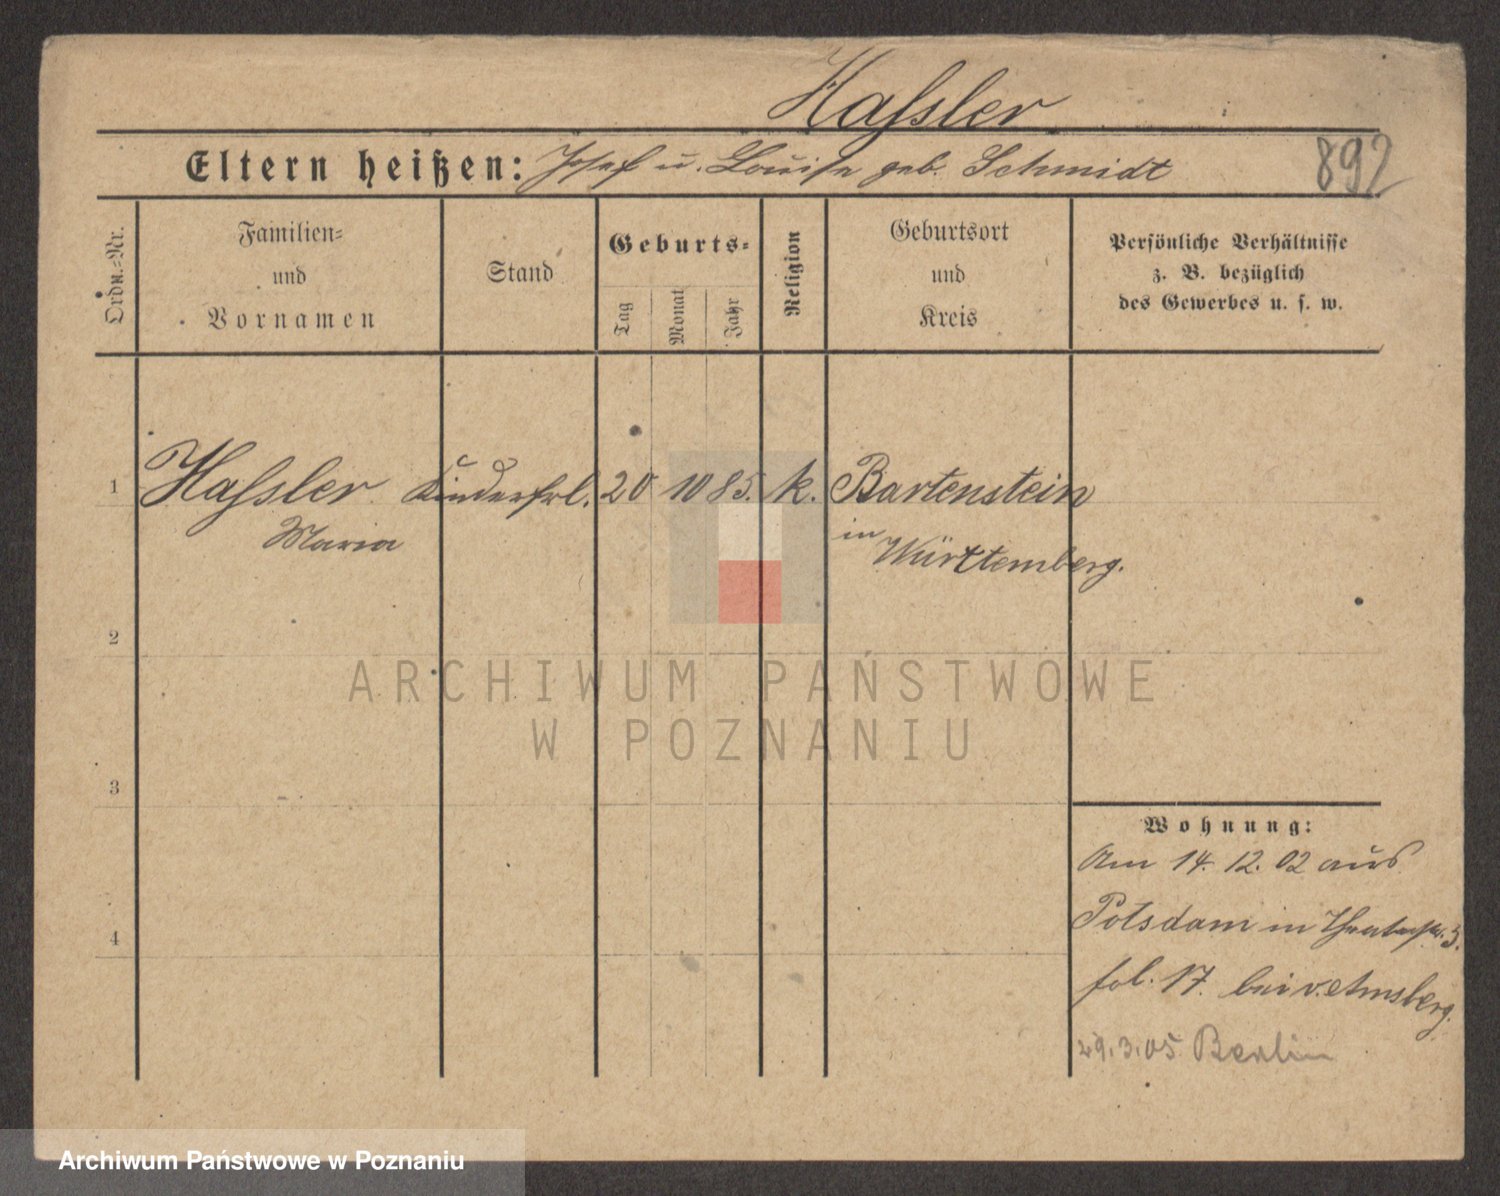 Haſsler
Eltern heißen: Josef u. Louise geb. Schmidt
892
Ordn.-Nr.
Familien-
und
Vornamen
Stand
Geburts-
Tag
Monat
Jahr
Religion
Geburtsort
und
Kreis
Persönliche Verhältnisse
z. B. bezüglich
des Gewerbes u. s. w.
1 Haſsler Kinderfrl. 20 10 85. k. Bartenstein
Maria
in Württemberg.
2
3
4
Wohnung:
Am 14. 12. 02 aus
Potsdam in Theaterstr. 3.
fol. 17. bei v. Arnsberg.
29.3.05 Berlin
ARCHIWUM PAŃSTWOWE
W POZNANIU
Archiwum Państwowe w Poznaniu